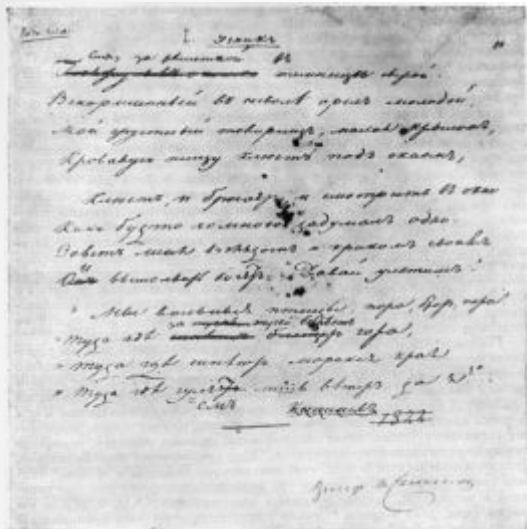 I. Узникъ
Сижу за решеткой въ
темницѣ сырой.
Вскормленный въ неволѣ орелъ молодой,
Мой грустный товарищъ, махая крыломъ,
Кровавую пищу клюетъ подъ окномъ,
Клюетъ, и бросаетъ, и смотритъ въ окно
Какъ будто со мною задумалъ одно.
Зоветъ меня взглядомъ и крикомъ своимъ
И вымолвить хочетъ: Давай улетимъ!
" Мы вольныя птицы; пора, братъ, пора
за тучей бѣлѣетъ
" туда гдѣ гора,
" туда гдѣ синѣютъ морскіе края
" туда гдѣ гуляемъ лишь вѣтръ да я
Кишиневъ 1822